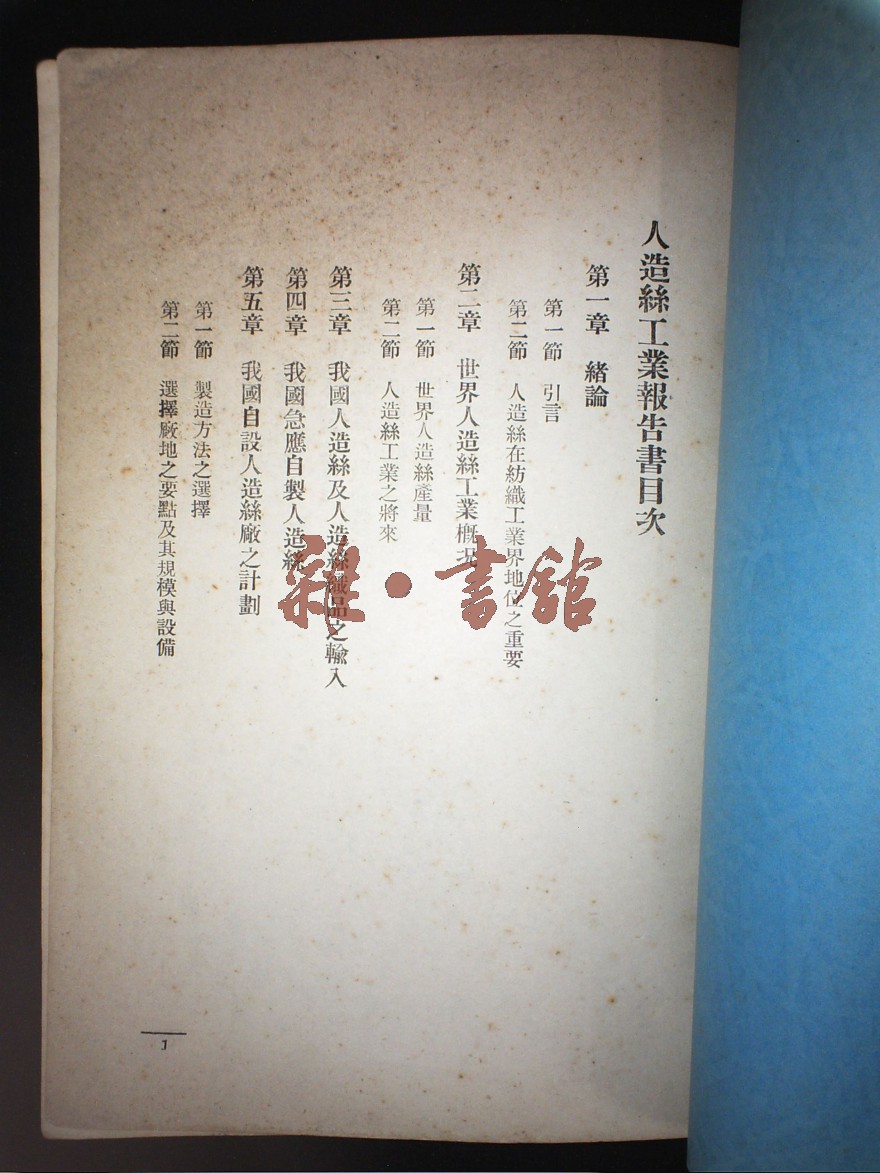 人造絲工業報告書目次
第一章　緒論
第一節　引言
第二節　人造絲在紡織工業界地位之重要
第二章　世界人造絲工業概況
第一節　世界人造絲產量
第二節　人造絲工業之將來
第三章　我國人造絲及人造絲織品之輸入
第四章　我國急應自製人造絲
第五章　我國自設人造絲廠之計劃
第一節　製造方法之選擇
第二節　選擇廠地之要點及其規模與設備
1
雜·書館